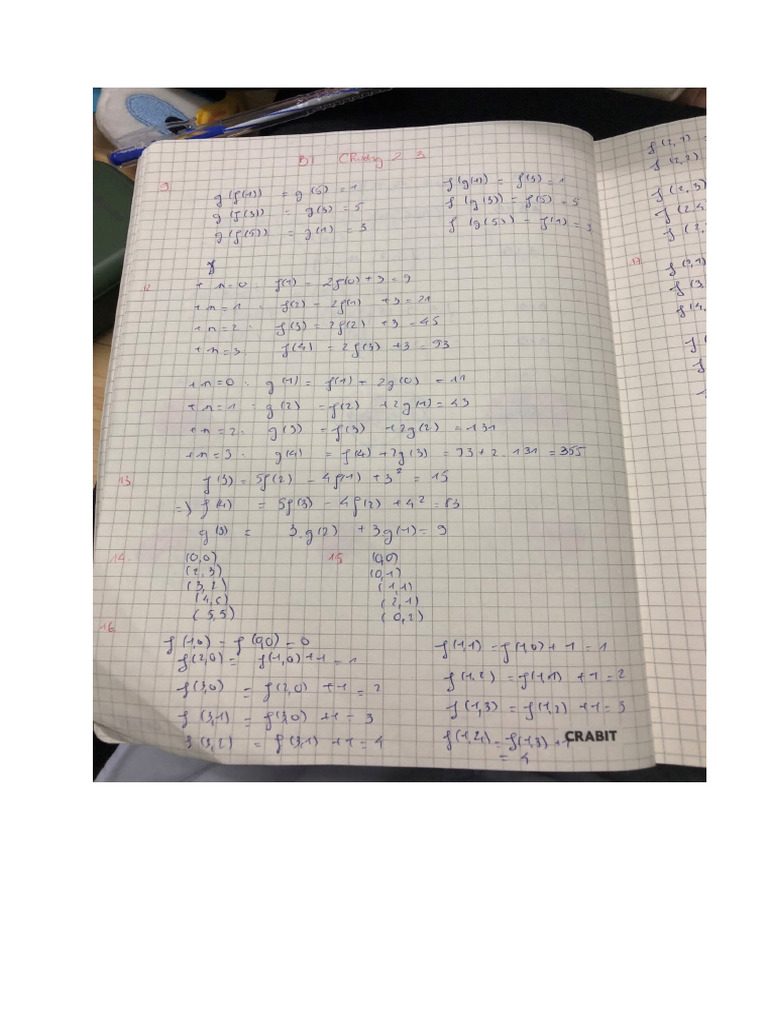 BT Chương 2 3
9
g(f(1)) = g(5) = 1
g(f(3)) = g(3) = 5
g(f(5)) = g(1) = 3
f(g(1)) = f(3) = 1
f(g(3)) = f(5) = 5
f(g(5)) = f(1) = 3
12
+ n=0 : f(1) = 2f(0)+3 = 9
+ n=1 : f(2) = 2f(1) +3 = 21
+ n=2 : f(3) = 2f(2) +3 = 45
+ n=3 : f(4) = 2f(3) +3 = 93
+ n=0 : g(1) = f(1) + 2g(0) = 11
+ n=1 : g(2) = f(2) +2g(1) = 43
+ n=2 : g(3) = f(3) +2g(2) = 131
+ n=3 : g(4) = f(4) +2g(3) = 93+2.131 = 355
13 f(3) = 5f(2) - 4f(1) +3² = 15
=> f(4) = 5f(3) - 4f(2) + 4² = 83
g(3) = 3.g(2) + 3g(1) = 9
14.
(0,0)
(2,3)
(3,2)
(4,6)
(5,5)
15
(0,0)
(0,1)
(1,1)
(2,1)
(0,2)
16
f(1,0) = f(0,0) = 0
f(2,0) = f(1,0)+1 = 1
f(3,0) = f(2,0) +1 = 2
f(3,1) = f(3,0) +1 = 3
f(3,2) = f(3,1) +1 = 4
f(1,1) = f(1,0)+1 = 1
f(1,2) = f(1,1) +1 = 2
f(1,3) = f(1,2) +1 = 3
f(1,4) = f(1,3) +1
= 4
CRABIT
f(2,1)
f(2,2)
f(2,3)
f(2,4
f(2,
17
f(3,1)
f(3,
f(4,